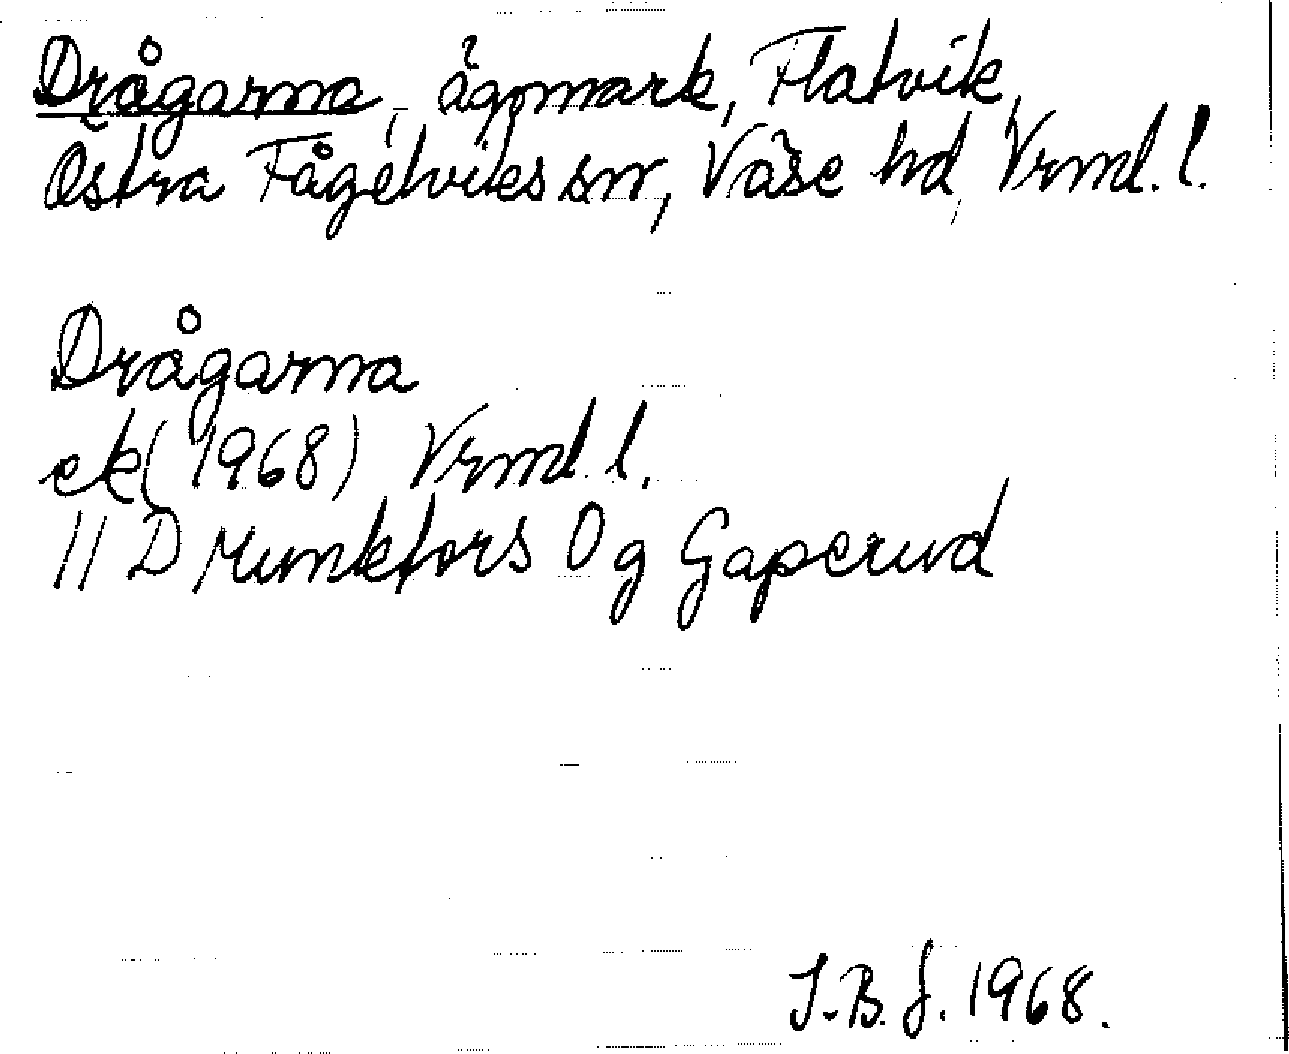 Drågarna, ägomark, Flatvik,
Östra Fågelviks sn, Väse hd, Vrml. l.
Drågarna
ek (1968) Vrml l.
11 D Munkfors 0 g Gaperud
J.B.J. 1968.